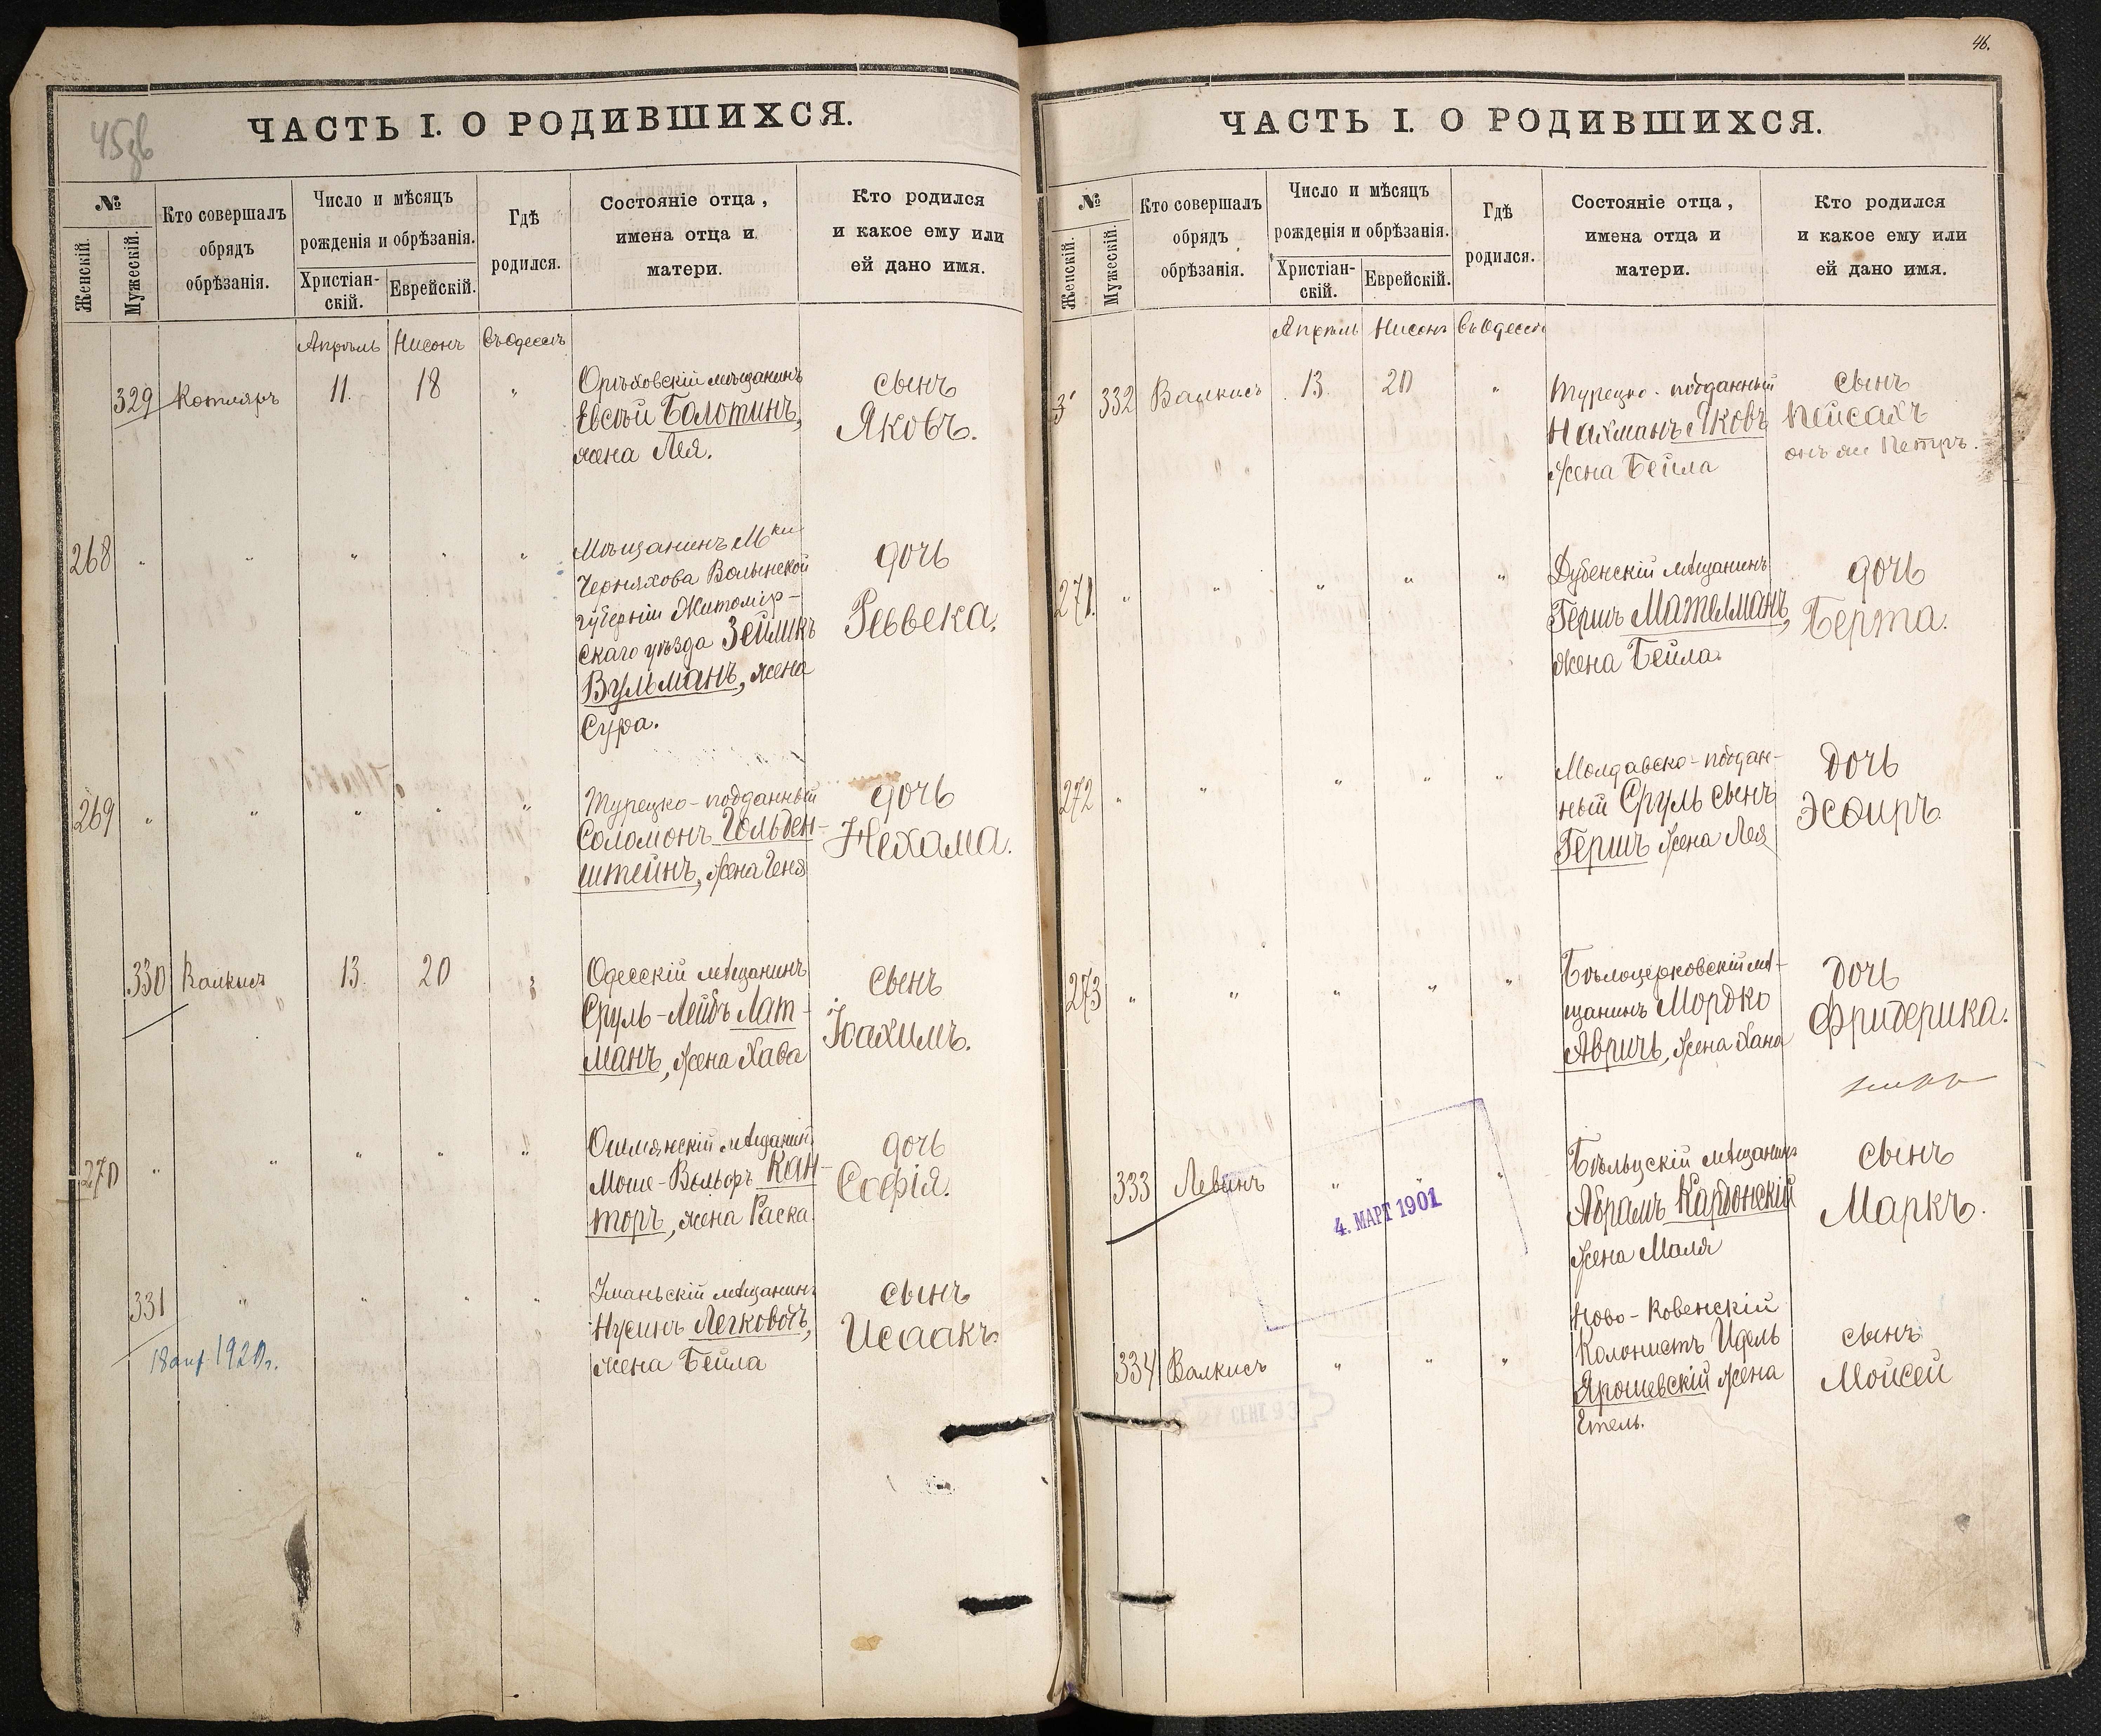 45зв
ЧАСТЬ I. О РОДИВШИХСЯ.
№
Женскій.
Мужескій.
Кто совершалъ
обрядъ
обрѣзанія.
Число и мѣсяцъ
рожденія и обрѣзанія.
Христіан-
скій.
Еврейскій.
Гдѣ
родился.
Состояніе отца,
имена отца и
матери.
Кто родился
и какое ему или
ей дано имя.
Апрѣль Нисонъ въ Одессѣ
329 Котляръ 11. 18 "
Орѣховскій мѣщанинъ
Евсѣй Болотинъ,
жена Лея.
сынъ
Яковъ.
268 " " " " "
Мѣщанинъ Мки
Черняхова Волынской
губерніи Житомір-
скаго уѣзда Зейликъ
Вульманъ, жена
Сура.
дочь
Реввека.
269 " " " " "
Турецко-подданный
Соломонъ Гольден-
штейнъ, жена Геня
дочь
Нехама.
330 Валкисъ 13. 20 "
Одесскій мѣщанинъ
Сруль-Лейбъ Лат-
манъ, жена Хава
сынъ
Іоахимъ.
270 " " " " "
Ошмянскій мѣщанин
Моше-Вольфъ Кан-
торъ, жена Раска.
дочь
Софія.
331 " " " "
18 апр. 1920 г.
Уманьскій мѣщанинъ
Нусинъ Легководъ,
жена Бейла
сынъ
Исаакъ.
46.
ЧАСТЬ I. О РОДИВШИХСЯ.
№
Женскій.
Мужескій.
Кто совершалъ
обрядъ
обрѣзанія.
Число и мѣсяцъ
рожденія и обрѣзанія.
Христіан-
скій.
Еврейскій.
Гдѣ
родился.
Состояніе отца,
имена отца и
матери.
Кто родился
и какое ему или
ей дано имя.
Апрѣль Нисонъ въ Одессѣ
332 Валкисъ 13. 20 "
Турецко-подданный
Нахманъ Яковъ
жена Бейла
сынъ
Пейсахъ
онъ же Петръ.
271. " " " " "
Дубенскій мѣщанинъ
Гершъ Мательманъ,
жена Бейла.
дочь
Берта.
272 " " " " "
Молдавско-поддан-
ный Сруль сынъ
Гершъ жена Лея
дочь
Эсѳирь
273 " " " " "
Бѣлоцерковскій мѣ-
щанинъ Мордко
Авричъ, жена Хана
дочь
Фридерика.
333 Левинъ " " "
4. МАРТ 1901
Бѣльцскій мѣщанинъ
Абрамъ Кардонскій
жена Маля
сынъ
Маркъ.
334 Валкисъ " " "
Ново-Ковенскій
Колонистъ Идель
Ярошевскій жена
Етель.
сынъ
Мойсей